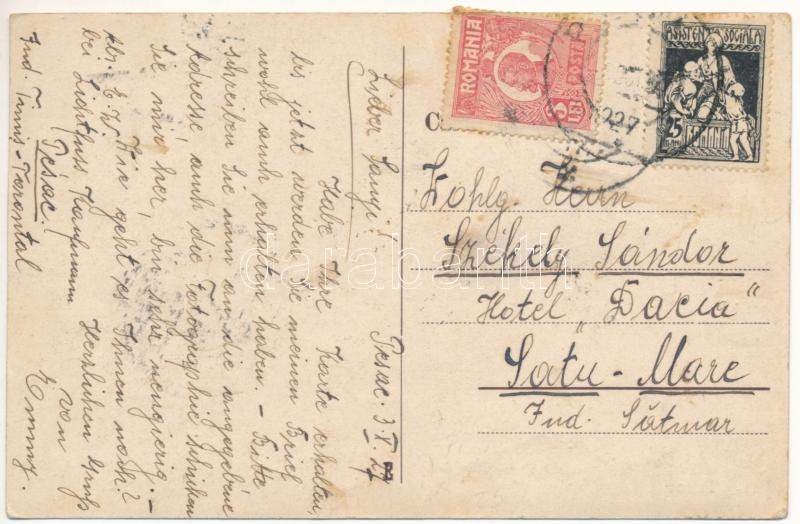 Pesac. 3. V. 27
Lieber Sanyi!
Habe Ihre Karte erhalten,
bis jetzt werden Sie meinen Brief
wohl auch erhalten haben. – Bitte
schreiben Sie nun an die angegebene
Adresse, auch die Fotographie schicken
Sie mir her, bin sehr neugierig. –
Wie geht es Ihnen noch?
Herzlichen Gruß
von
Emmy.
Abr. E. W.
bei Lichtfuss Kaufmann
Pesac.
Jud. Timiș-Torontal
ROMANIA
POSTA
3 LEI
ASISTENTA SOCIALA
25
927
C
Wohlg. Herrn
Székely Sándor
Hotel „Dacia“
Satu-Mare
Jud. Sătmar
darabanth